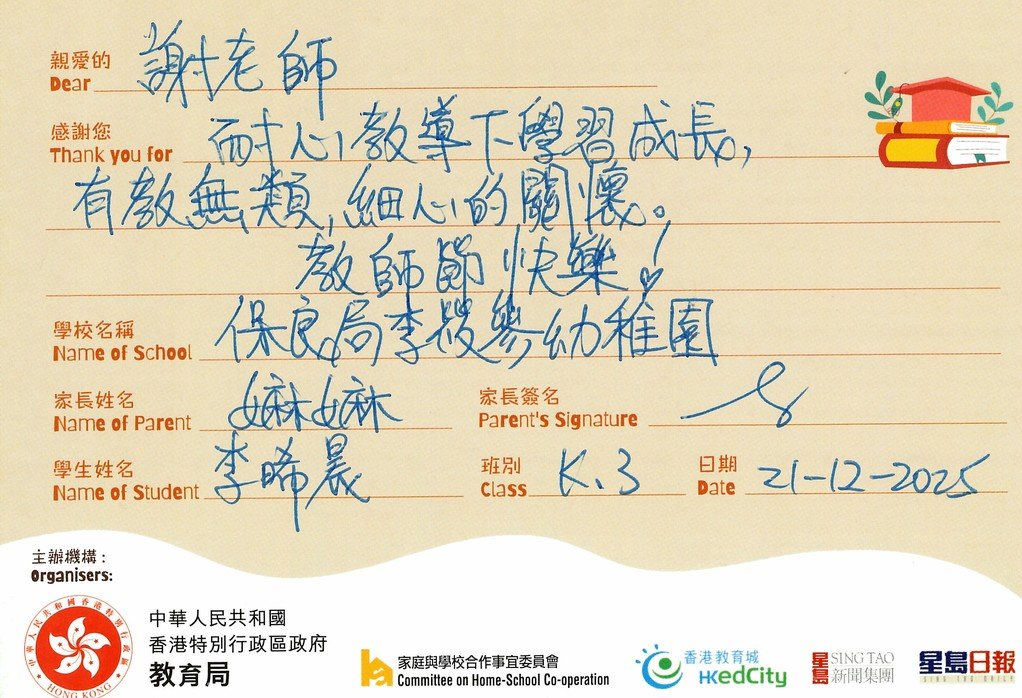 親愛的 謝老師
Dear
感謝您 耐心教導下學習成長,
Thank you for
有教無類,細心的關懷。
教師節快樂!
學校名稱 保良局李筱參幼稚園
Name of School
家長姓名 嫲嫲 家長簽名
Name of Parent Parent's Signature
學生姓名 李晞晨 班別 K.3 日期 21-12-2025
Name of Student Class Date
主辦機構:
Organisers:
中華人民共和國香港特別行政區
HONG KONG
中華人民共和國
香港特別行政區政府
教育局
家庭與學校合作事宜委員會
Committee on Home-School Co-operation
香港教育城
HKedCity
星島 SING TAO
新聞集團
星島日報
SING TAO DAILY